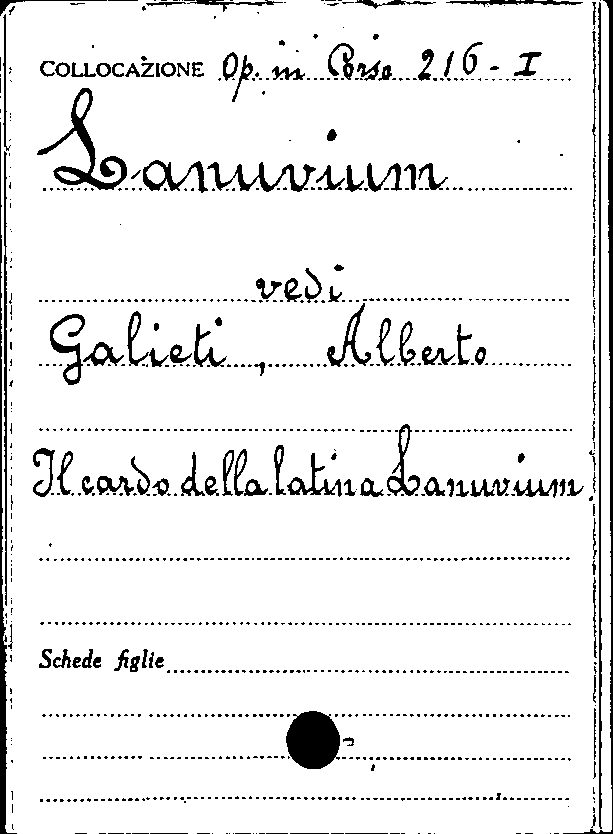 COLLOCAZIONE Op. in Corso 216 - I
Lanuvium
vedi
Galieti, Alberto
Il cardo della latina Lanuvium
Schede figlie